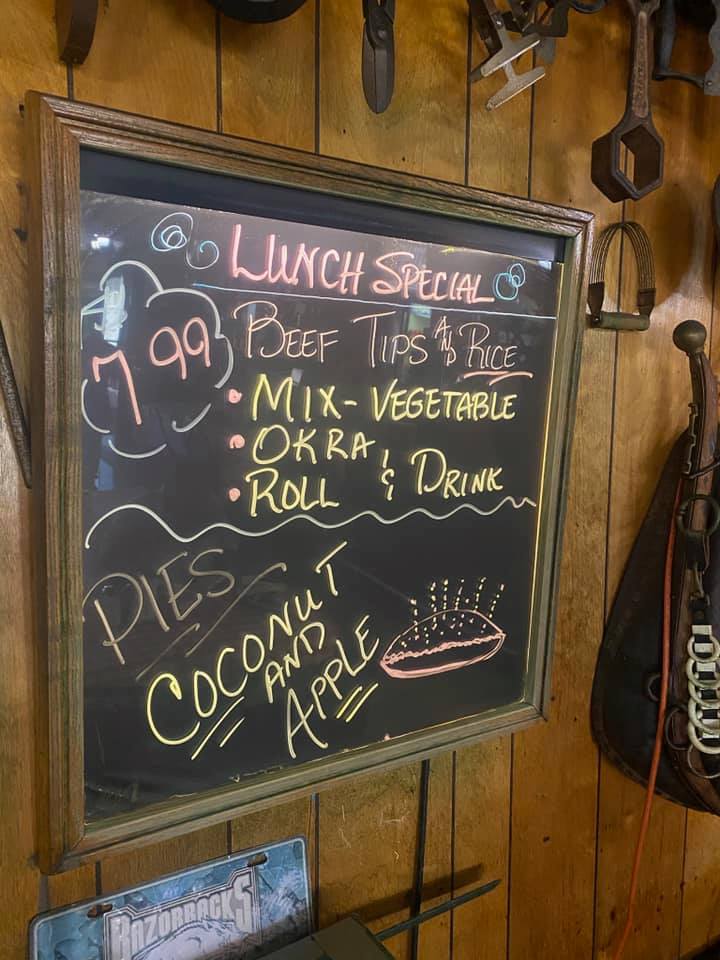 LUNCH SPECIAL
7 99
BEEF TIPS AND RICE
• MIX- VEGETABLE
• OKRA,
• ROLL & DRINK
PIES
COCONUT
AND
APPLE
RAZORBACKS